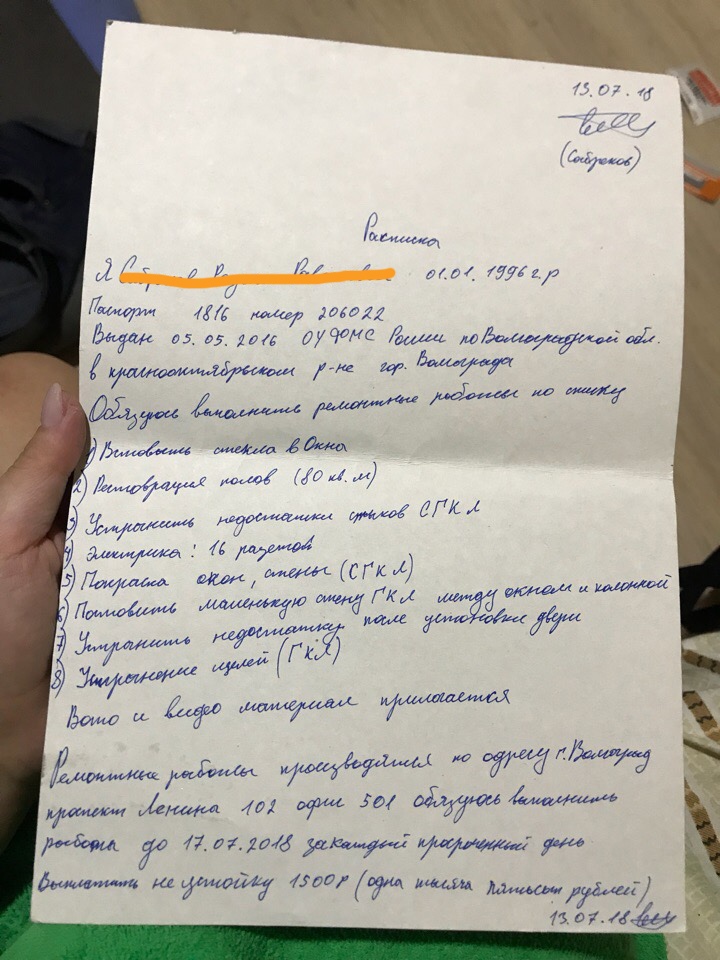 13.07.18
(Сабреков)
Расписка
Я 01.01.1996 г.р
Паспорт 1816 номер 206022
Выдан 05.05.2016 ОУФМС России по Волгоградской обл.
в краснооктябрьском р-не гор. Волгограда
Обязуюсь выполнить ремонтные работы по списку
1) Вставить стекла в Окна
2) Реставрация полов (80 кв.м)
3) Устранить недостатки стыков СГКЛ
4) Электрика: 16 разетов
5) Покраска окон, стены (СГКЛ)
6) Поставить маленькую стену ГКЛ между окном и колонной
7) Устранить недостатки после установки двери
8) Устранение щелей (ГКЛ)
Вото и видео материал прилогается
Ремонтные работы производятся по адресу г. Волгоград
проспект Ленина 102 офис 501 обязуюсь выполнить
работы до 17.07.2018 за каждый просроченный день
Выплатить не устойку 1500р (одна тысяча пятьсот рублей)
13.07.18